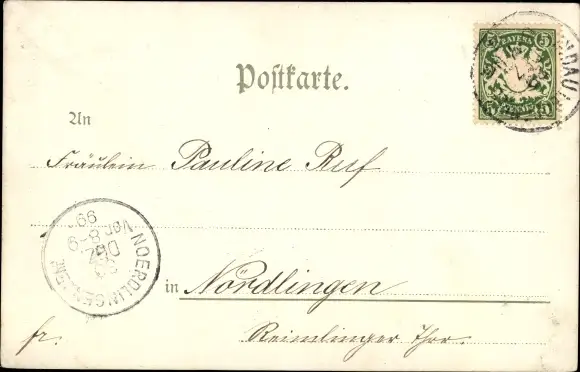 BAYERN
5 5
5
PFENNIG
Postkarte.
An
Fräulein Pauline Ruf
NOERDLINGEN
Vor. 8-9
DEZ
99.
in Nördlingen
Reimlinger Thor.
fr.